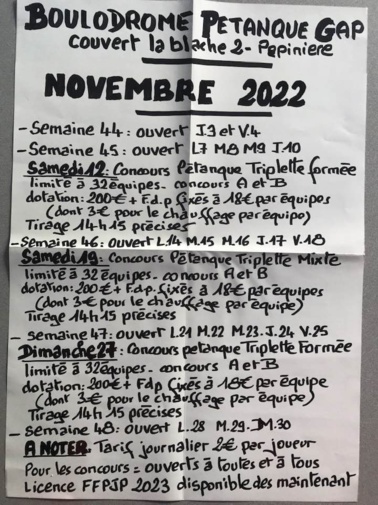 BOULODROME PETANQUE GAP
couvert la blache 2 - Pepiniere
NOVEMBRE 2022
- Semaine 44 : ouvert J.3 et V.4
- Semaine 45 : ouvert L7 M8 M9 J.10
Samedi 12 : Concours Pétanque Triplette formée
limité à 32 équipes - concours A et B
dotation : 200€ + F.d.p fixés à 18€ par équipes
(dont 3€ pour le chauffage par équipe)
Tirage 14h15 précises
- Semaine 46 : ouvert L.14 M.15 M.16 J.17 V.18
Samedi 19 : Concours Pétanque Triplette Mixte
limité à 32 équipes - concours A et B
dotation : 200€ + F.d.p. fixés à 18€ par équipes
(dont 3€ pour le chauffage par équipe)
Tirage 14h15 précises
- semaine 47 : ouvert L.21 M.22 M.23 - J.24 V.25
Dimanche 27 : Concours petanque Triplette Formée
limité à 32 équipes - concours A et B
dotation : 200€ + Fdp fixés à 18€ par équipe
(dont 3€ pour le chauffage par équipe)
Tirage 14h15 précises
- Semaine 48 : ouvert L.28 M.29 - M.30
A NOTER. Tarif journalier 2€ par joueur
Pour les concours = ouverts à toutes et à tous
Licence FFPJP 2023 disponible des maintenant